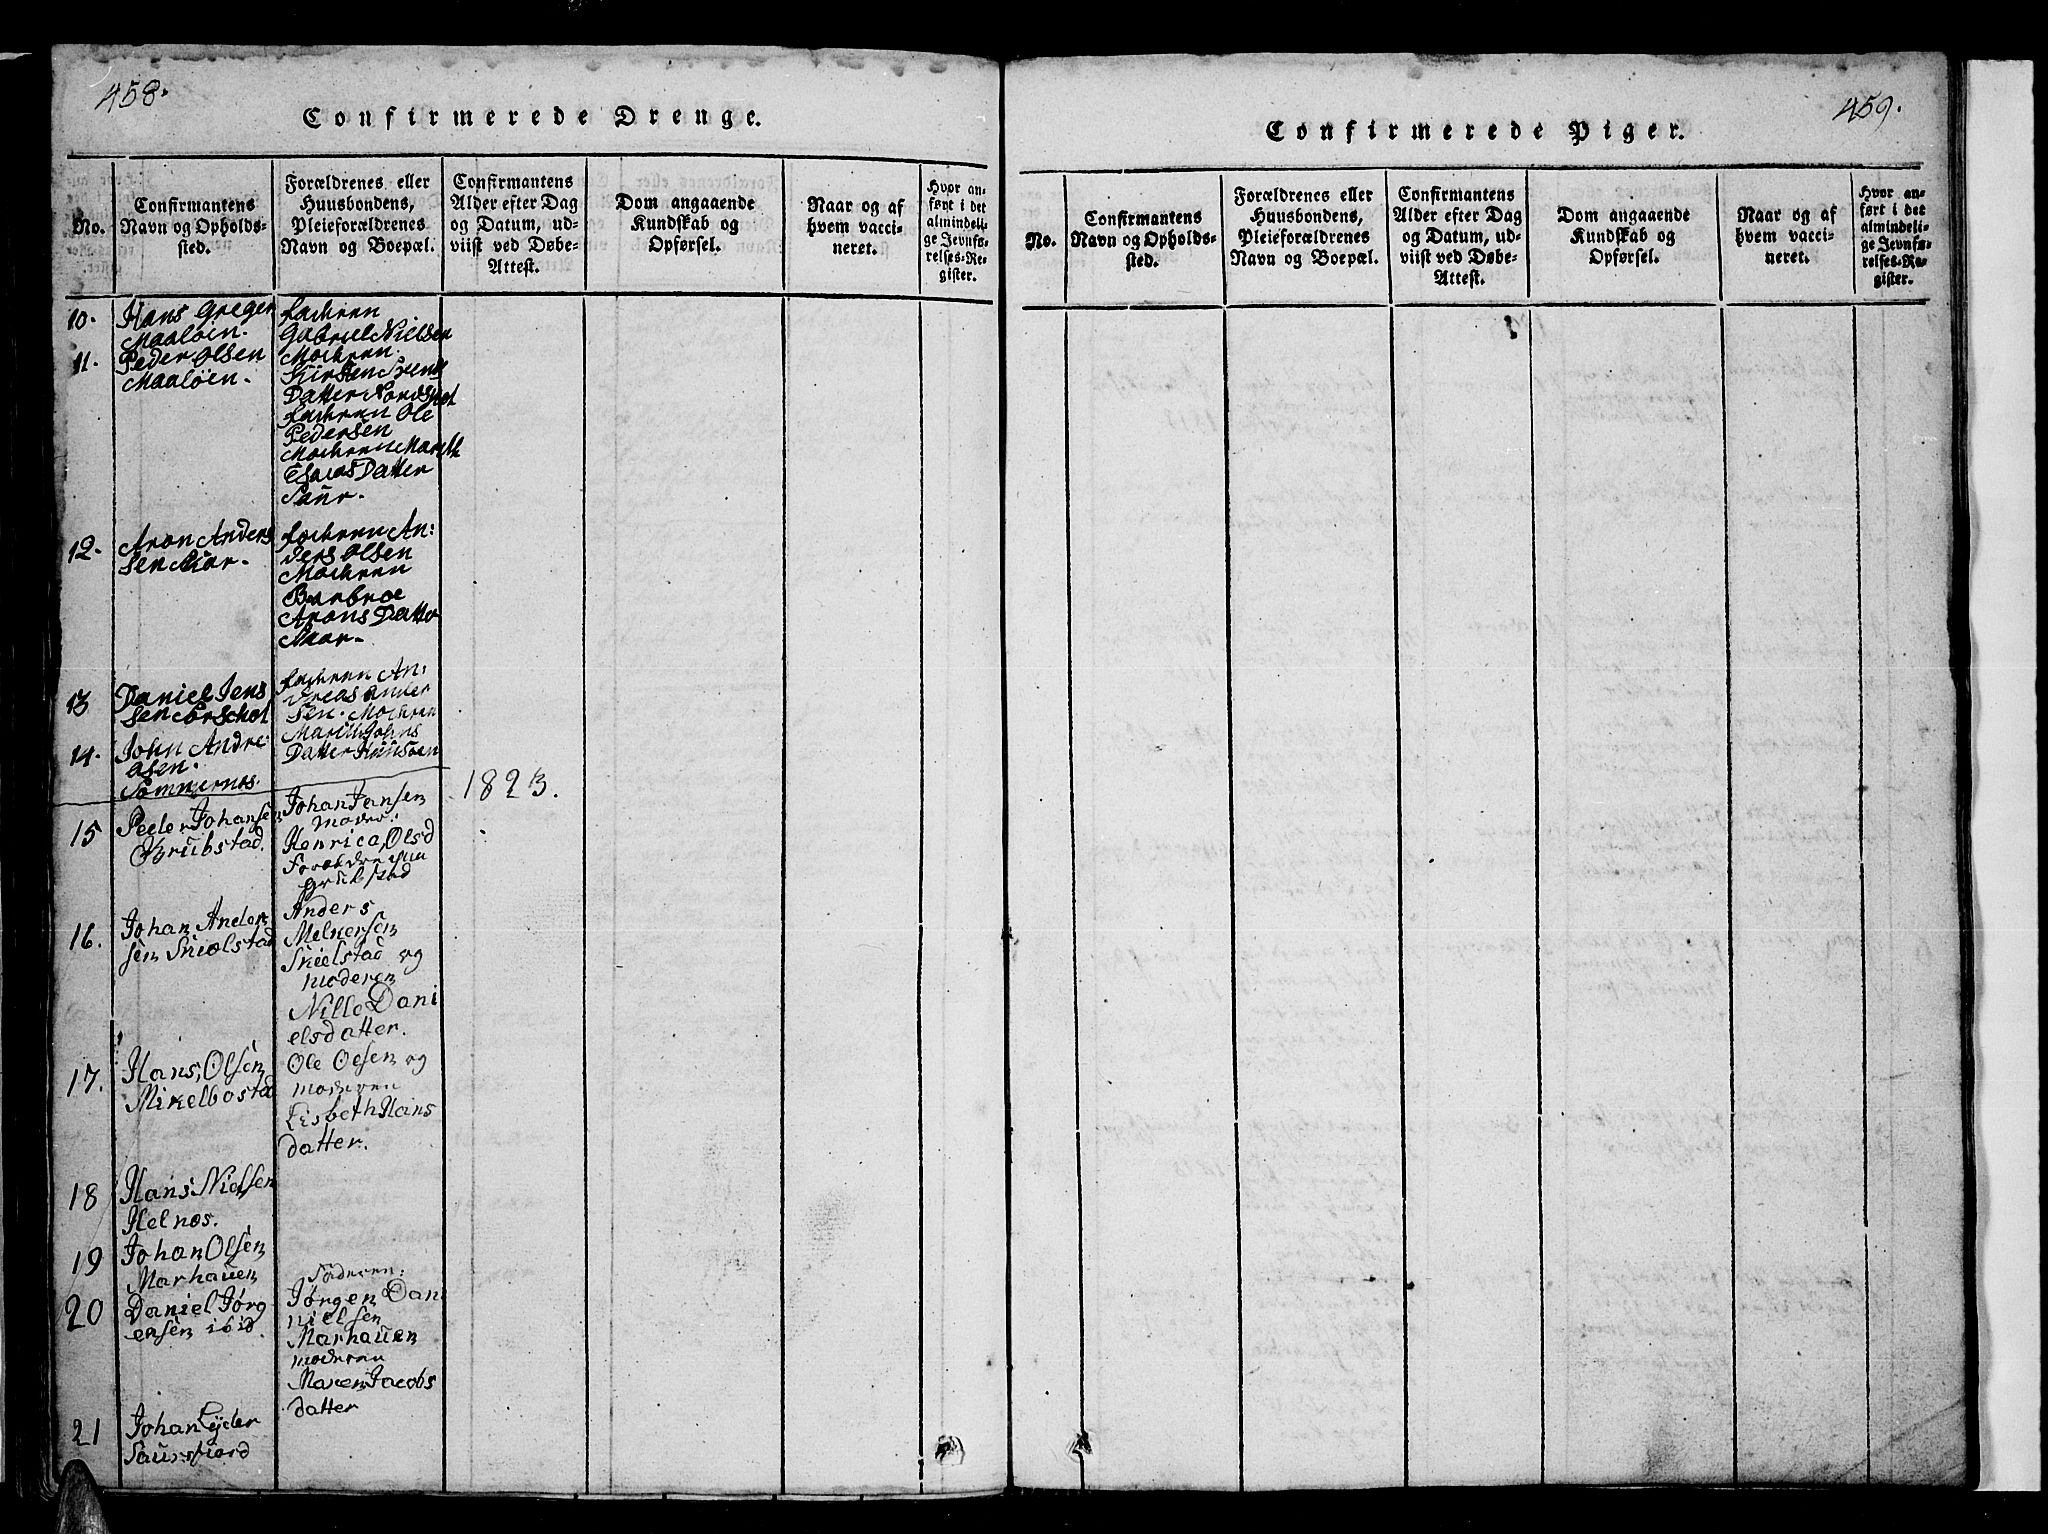 458.
Confirmerede Drenge.
No.
Confirmantens
Navn og Opholds-
sted.
Forældrenes eller
Huusbondens,
Pleieforældrenes
Navn og Boepæl.
Confirmantens
Alder efter Dag
og Datum, ud-
viist ved Døbe-
Attest.
Dom angaaende
Kundskab og
Opførsel.
Naar og af
hvem vacci-
neret.
Hvor an-
ført i det
almindeli-
ge Jevnfø-
relses-Re-
gister.
10.
Hans Greger
Maaløen.
Gabriel Nielsen
Datter
11.
Peder Olsen
Maaløen.
Ole
Pedersen
Datter
12.
Aron Anders
sen
An:
ders Olsen
Barbroe
Arons Datter
13
Daniel Jens
sen
An:
dreas Ander
sen.
Johns
Datter
14.
John Andre
asen.
Sommernes.
1823.
15
Peder Johansen
Grubstad.
Johan Jansen
Moder:
Henrica, Olsd
Grubstad
16.
Johan Ander
sen Skielstad
Anders
Melkersen
Skielstad og
moderen
Nille Dani
elsdatter.
17.
Hans, Olsen
Mikelbostad
Ole Olsen og
moderen
Lisbeth Hans
datter.
18
Hans Nielsen
Helnæs.
19
Johan Olsen
Marhauen
20
Daniel Jørg
ensen ibid.
Jørgen Dan
nielsen
Marhauen
moderen
Maren Jacobs
datter
21
Johan Lyder
Saursfiord
459.
Confirmerede Piger.
No.
Confirmantens
Navn og Opholds-
sted.
Forældrenes eller
Huusbondens,
Pleieforældrenes
Navn og Boepæl.
Confirmantens
Alder efter Dag
og Datum, ud-
viist ved Døbe-
Attest.
Dom angaaende
Kundskab og
Opførsel.
Naar og af
hvem vacci-
neret.
Hvor an-
ført i det
almindeli-
ge Jevnfø-
relses-Re-
gister.